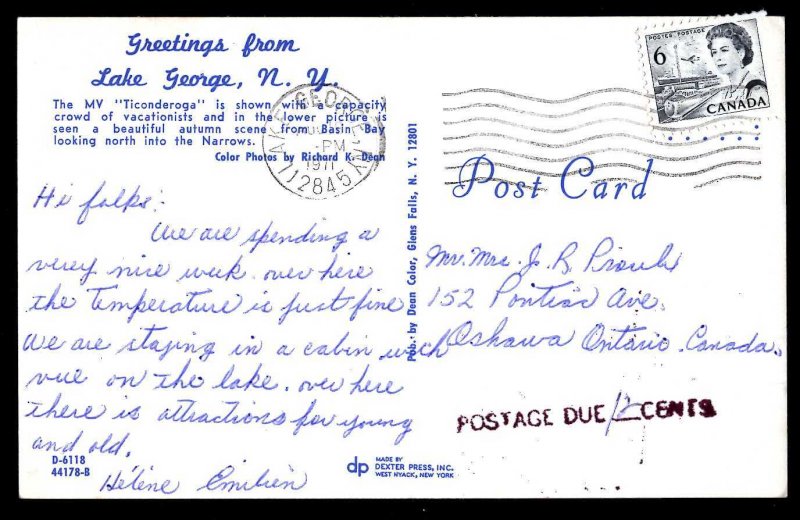 Greetings from
Lake George, N. Y.
The MV "Ticonderoga" is shown with a capacity
crowd of vacationists and in the lower picture is
seen a beautiful autumn scene from Basin Bay
looking north into the Narrows.
Color Photos by Richard K. Dean
LAKE GEORGE NY
PM
1971
12845
POSTES POSTAGE
6
CANADA
Post Card
Hi folks:
We are spending a
verey nice week over here
the temperature is just fine
We are staying in a cabin with
vue on the lake. over here
there is attractions for young
and old.
Hélène Emilien
D-6118
44178-B
Pub. by Dean Color, Glens Falls, N. Y. 12801
dp
MADE BY
DEXTER PRESS, INC.
WEST NYACK, NEW YORK
Mr. Mrs. J. R. Proulx
152 Pontiac Ave.
Oshawa Ontario. Canada.
POSTAGE DUE 12 CENTS